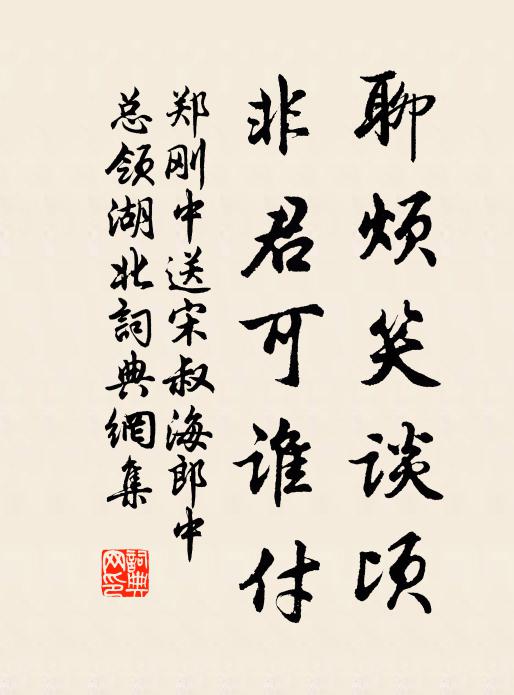 聊烦笑谈顷
非君可谁付
郑刚中送宋叔海郎中
总领湖北詞典網集
詞典网印